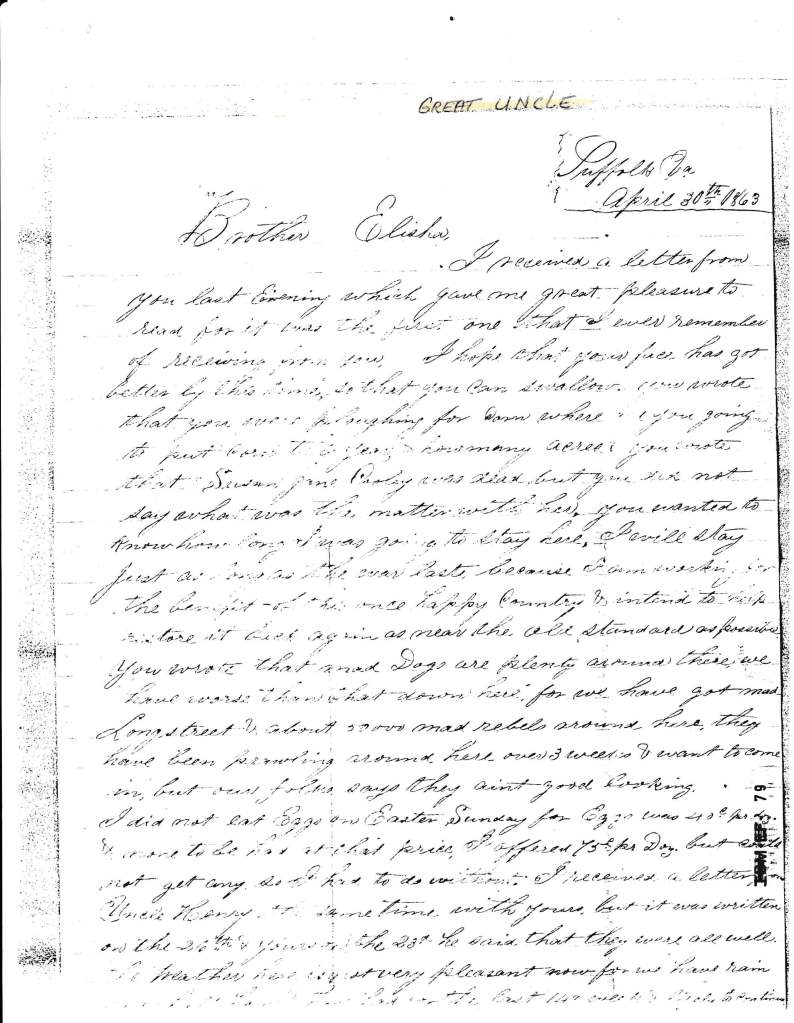 GREAT UNCLE
Suffolk Va
April 30th 1863
Brother Elisha,
I received a letter from
you last Evening which gave me great pleasure to
read for it was the first one that I ever remember
of receiving from you, I hope that your face has got
better by this time, so that you can swallow. you wrote
that you were ploughing for Corn where you going
to put corn this year & how many acres you wrote
that Susan Jane Cooley was dead but you did not
say what was the matter with her, you wanted to
know how long I was going to stay here, I will stay
just as long as the war lasts, because I am working for
the benefit of this once happy Country & intend to help
restore it back again as near the old standard as possible
You wrote that mad Dogs are plenty around there, we
have worse than that down here, for we have got mad
Longstreet & about mad rebels around here, they
have been prowling around here over 3 weeks & want to come
in, but our folks says they aint good looking.
I did not eat Eggs on Easter Sunday for Eggs was 40c pr
& none to be had at that price, I offered 75c pr Doz but could
not get any so I had to do without. I received a letter from
Uncle Henry the same time with yours, but it was written
on the 26th & yours on the 23d he said that they were all well.
Weather here is not very pleasant now for we have rain
the last weeks to continue
79